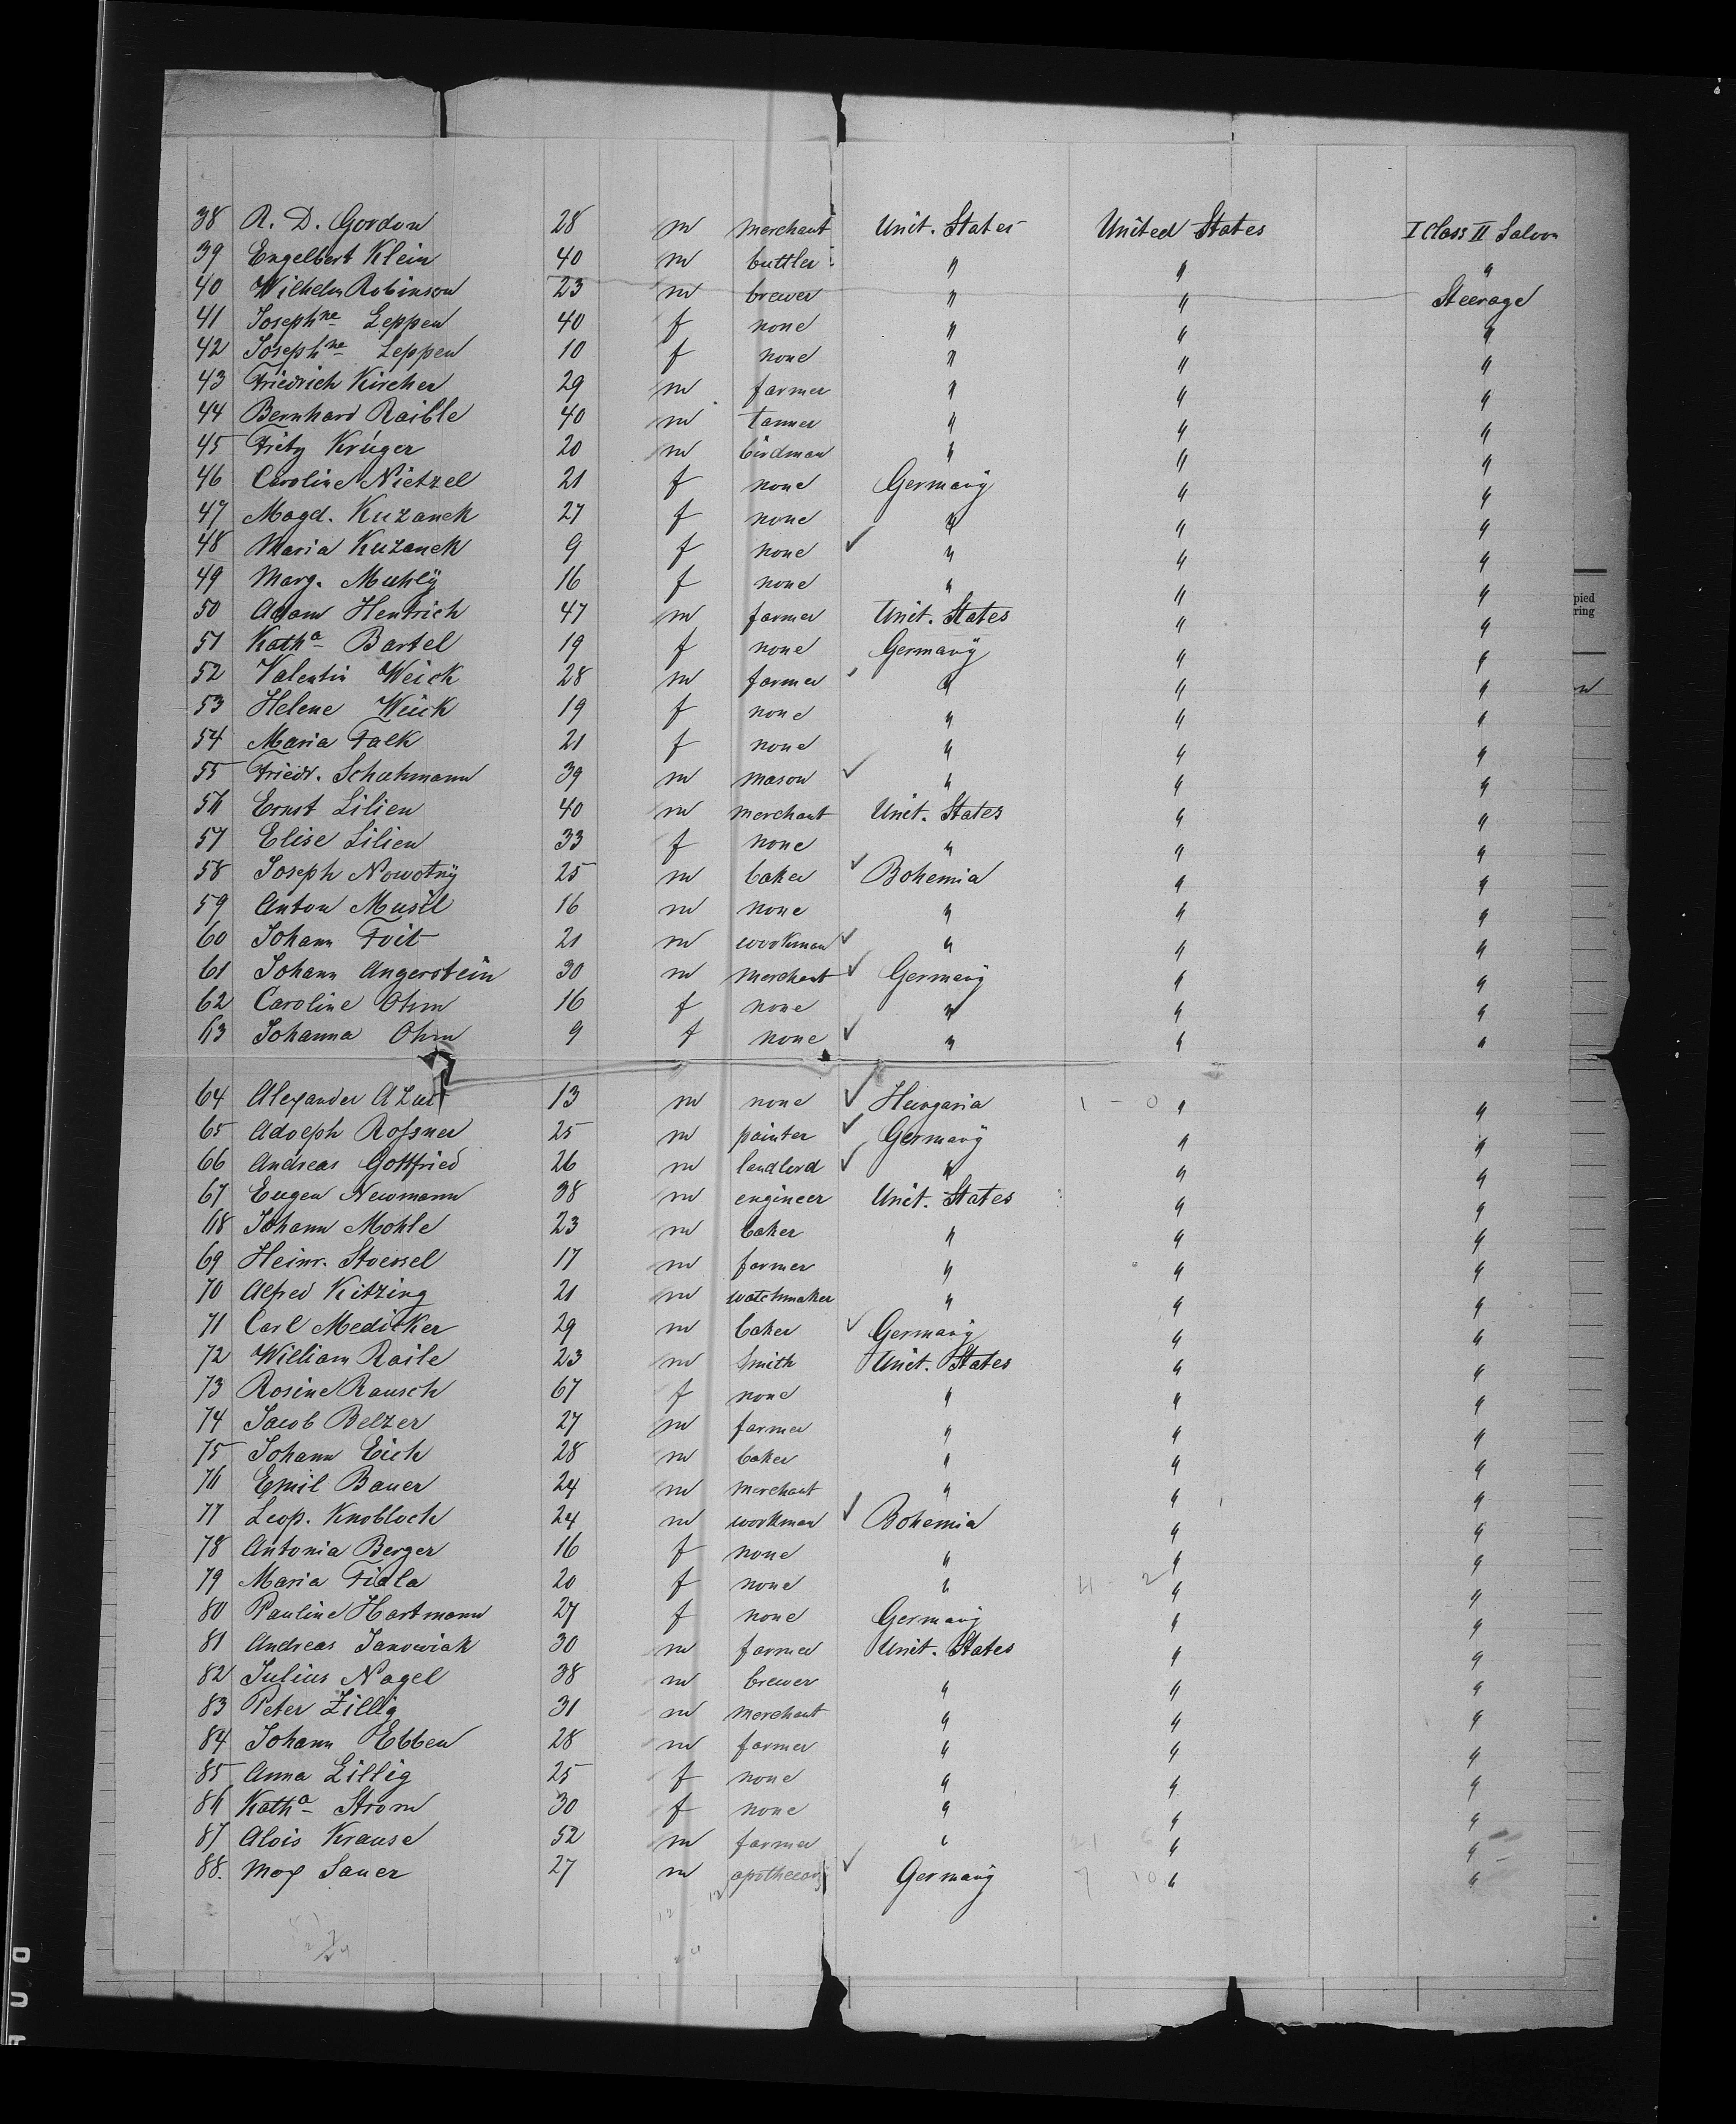 38 R. D. Gordon 28 m merchant Unit. States United States I Class II Saloon
39 Engelbert Klein 40 m buttler " " "
40 Wilhelm Robinson 23 m brewer " " Steerage
41 Josephne Leppen 40 f none " " "
42 Josephne Leppen 10 f none " " "
43 Friedrich Kircher 29 m farmer " " "
44 Bernhard Raible 40 m tanner " " "
45 Fritz Krüger 20 m birdman " " "
46 Caroline Nietzel 21 f none Germany " "
47 Magd. Kuzanek 27 f none " " "
48 Maria Kuzanek 9 f none " " "
49 Marg. Muhly 16 f none " " "
50 Adam Hentrich 47 m farmer Unit. States " "
51 Katha Bartel 19 f none Germany " "
52 Valentin Weick 28 m farmer " " "
53 Helene Weick 19 f none " " "
54 Maria Falk 21 f none " " "
55 Friedr. Schuhmann 39 m mason " " "
56 Ernst Lilien 40 m merchant Unit. States " "
57 Elise Lilien 33 f none " " "
58 Joseph Nowotny 25 m baker Bohemia " "
59 Anton Musil 16 m none " " "
60 Johann Foit 21 m workman " " "
61 Johann Angerstein 30 m merchant Germany " "
62 Caroline Ohm 16 f none " " "
63 Johanna Ohm 9 f none " " "
64 Alexander 13 m none Hungaria 1 - 0 " "
65 Adolph Rossner 25 m painter Germany " "
66 Andreas Gottfried 26 m landlord " " "
67 Eugen Newmann 38 m engineer Unit. States " "
68 Johann Mohle 23 m baker " " "
69 Heinr. Stoessel 17 m farmer " " "
70 Alfred Kitzing 21 m watchmaker " " "
71 Carl Medicker 29 m baker Germany " "
72 William Raile 23 m smith Unit. States " "
73 Rosine Rausch 67 f none " " "
74 Jacob Belzer 27 m farmer " " "
75 Johann Eich 28 m baker " " "
76 Emil Bauer 24 m merchant " " "
77 Leop. Knobloch 24 m workman Bohemia " "
78 Antonia Berger 16 f none " " "
79 Maria Fiala 20 f none " 4 - 2 " "
80 Pauline Hartmann 27 f none Germany " "
81 Andreas Janowiak 30 m farmer Unit. States " "
82 Julius Nagel 38 m brewer " " "
83 Peter Zillig 31 m merchant " " "
84 Johann Ebben 28 m farmer " " "
85 Anna Lillig 25 f none " " "
86 Katha Strom 30 f none " " "
87 Alois Krause 52 m farmer " 21 6 " "
88. Max Sauer 27 m apothecary Germany 7 10 " "